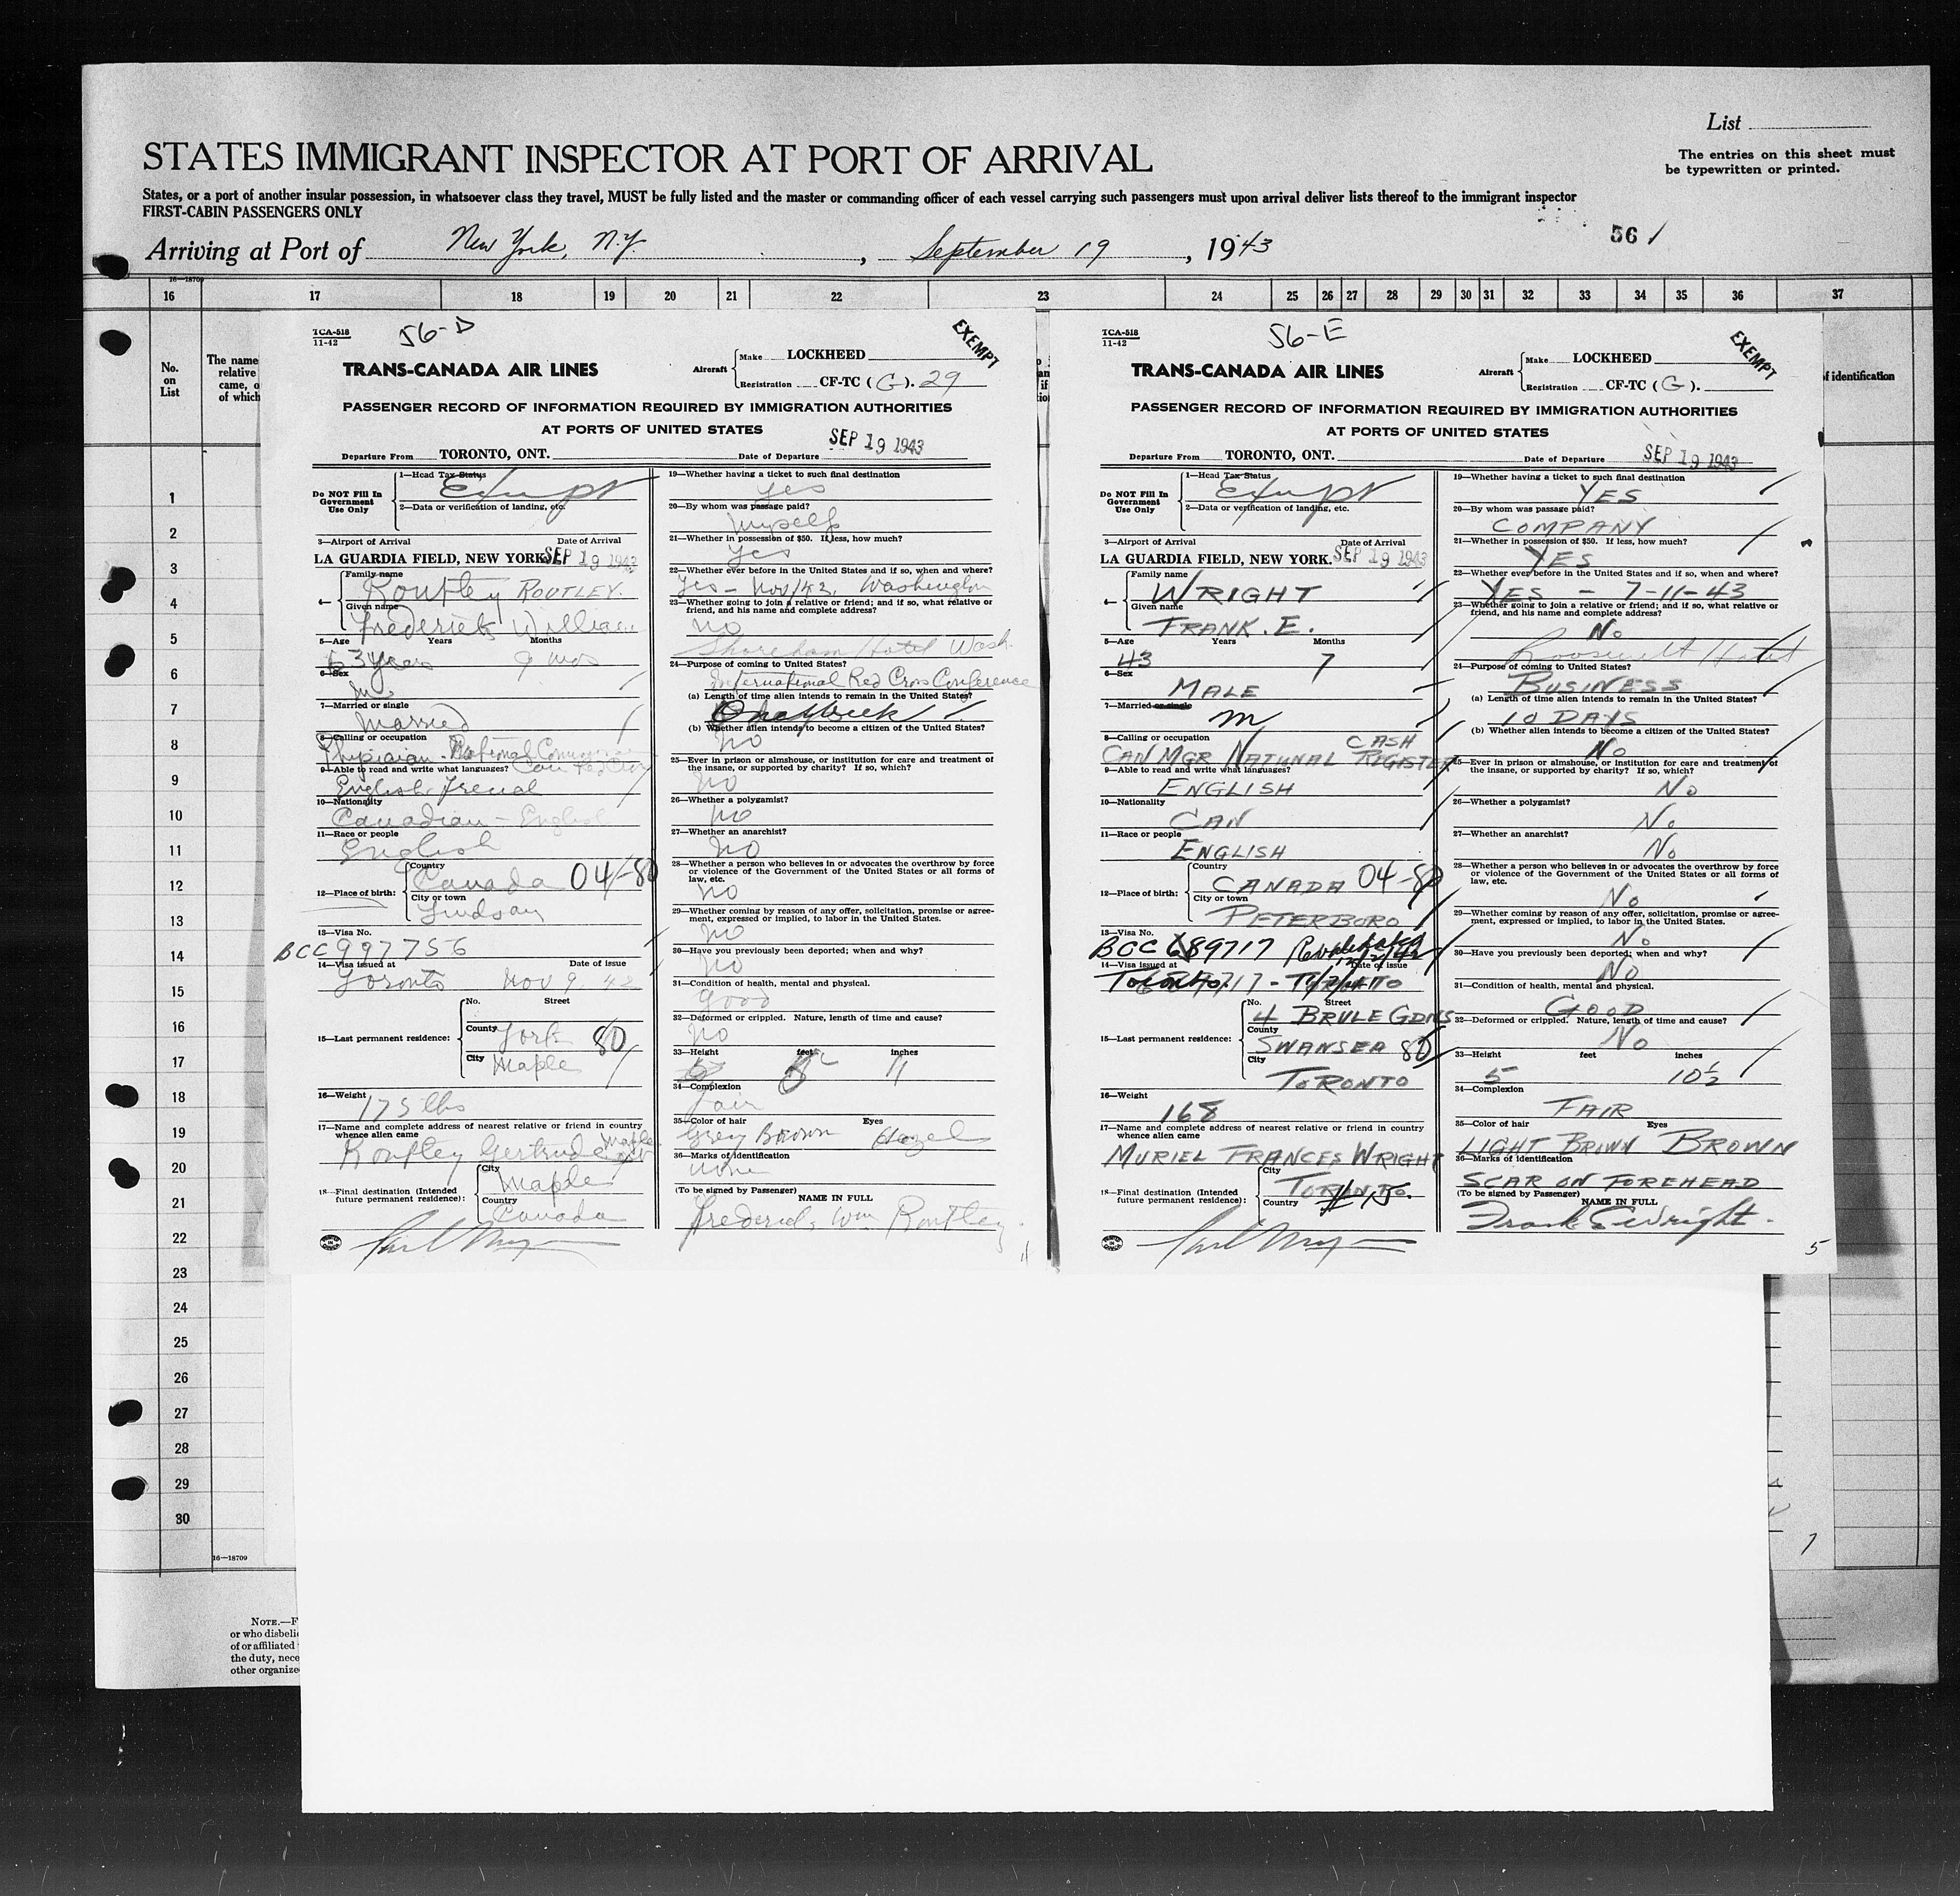 List
The entries on this sheet must
be typewritten or printed.
STATES IMMIGRANT INSPECTOR AT PORT OF ARRIVAL
States, or a port of another insular possession, in whatsoever class they travel, MUST be fully listed and the master or commanding officer of each vessel carrying such passengers must upon arrival deliver lists thereof to the immigrant inspector
FIRST-CABIN PASSENGERS ONLY
56 1
Arriving at Port of New York, N.Y. , September 19 , 1943
16—18709
16 17 18 19 20 21 22 23 24 25 26 27 28 29 30 31 32 33 34 35 36 37
No.
on
List
The name
relative
came, o
of which
of identification
1
2
3
4
5
6
7
8
9
10
11
12
13
14
15
16
17
18
19
20
21
22
23
24
25
26
27
28
29
30
16—18709
NOTE.—F
or who disbeli
of or affiliated
the duty, nece
other organiz
TCA-518
11-42
56-D
EXEMPT
TRANS-CANADA AIR LINES
Aircraft
Make LOCKHEED
Registration CF-TC (G). 29
PASSENGER RECORD OF INFORMATION REQUIRED BY IMMIGRATION AUTHORITIES
AT PORTS OF UNITED STATES
Departure From TORONTO, ONT. Date of Departure SEP 19 1943
Do NOT Fill In
Government
Use Only
1—Head Tax Status
Exempt
2—Data or verification of landing, etc.
3—Airport of Arrival Date of Arrival
LA GUARDIA FIELD, NEW YORK. SEP 19 1943
4—
Family name
Routley ROUTLEY.
Given name
Frederick William
5—Age Years Months
63 years 9 mos
6—Sex
M
7—Married or single
Married
8—Calling or occupation
Physician - National
9—Able to read and write what languages?
English French
10—Nationality
Canadian - English
11—Race or people
English
12—Place of birth:
Country
Canada 04-80
City or town
Lindsay
13—Visa No.
BCC 997756
14—Visa issued at Date of issue
Toronto Nov 9. 42
15—Last permanent residence:
No. Street
County
York 80
City
Maple
16—Weight
175 lbs
17—Name and complete address of nearest relative or friend in country
whence alien came
Routley Gertrude Maple
18—Final destination (Intended
future permanent residence):
City
Maple
Country
Canada
19—Whether having a ticket to such final destination
yes
20—By whom was passage paid?
Myself
21—Whether in possession of $50. If less, how much?
yes
22—Whether ever before in the United States and if so, when and where?
Yes - Nov/42. Washington
23—Whether going to join a relative or friend; and if so, what relative or
friend, and his name and complete address?
no
Shoreham Hotel Wash.
24—Purpose of coming to United States?
International Red Cross Conference
(a) Length of time alien intends to remain in the United States?
One Week
(b) Whether alien intends to become a citizen of the United States?
no
25—Ever in prison or almshouse, or institution for care and treatment of
the insane, or supported by charity? If so, which?
no
26—Whether a polygamist?
no
27—Whether an anarchist?
no
28—Whether a person who believes in or advocates the overthrow by force
or violence of the Government of the United States or all forms of
law, etc.
no
29—Whether coming by reason of any offer, solicitation, promise or agree-
ment, expressed or implied, to labor in the United States.
no
30—Have you previously been deported; when and why?
no
31—Condition of health, mental and physical.
Good
32—Deformed or crippled. Nature, length of time and cause?
no
33—Height feet inches
5 11
34—Complexion
Fair
35—Color of hair Eyes
Grey Brown Hazel
36—Marks of identification
none
(To be signed by Passenger) NAME IN FULL
Frederick Wm Routley.
TCA-518
11-42
56-E
EXEMPT
TRANS-CANADA AIR LINES
Aircraft
Make LOCKHEED
Registration CF-TC (G).
PASSENGER RECORD OF INFORMATION REQUIRED BY IMMIGRATION AUTHORITIES
AT PORTS OF UNITED STATES
Departure From TORONTO, ONT. Date of Departure SEP 19 1943
Do NOT Fill In
Government
Use Only
1—Head Tax Status
Exempt
2—Data or verification of landing, etc.
3—Airport of Arrival Date of Arrival
LA GUARDIA FIELD, NEW YORK. SEP 19 1943
4—
Family name
WRIGHT
Given name
FRANK. E.
5—Age Years Months
43 7
6—Sex
MALE
7—Married or single
M
8—Calling or occupation
CAN MGR NATIONAL CASH REGISTER
9—Able to read and write what languages?
ENGLISH
10—Nationality
CAN
11—Race or people
ENGLISH
12—Place of birth:
Country
CANADA 04-80
City or town
PETERBORO
13—Visa No.
BCC 689717 Revalidated 12/2/42
14—Visa issued at Date of issue
Toronto
15—Last permanent residence:
No. Street
4 BRULE GDNS
County
SWANSEA 80
City
TORONTO
16—Weight
168
17—Name and complete address of nearest relative or friend in country
whence alien came
MURIEL FRANCES WRIGHT
18—Final destination (Intended
future permanent residence):
City
TORONTO.
Country
19—Whether having a ticket to such final destination
YES
20—By whom was passage paid?
COMPANY
21—Whether in possession of $50. If less, how much?
YES
22—Whether ever before in the United States and if so, when and where?
YES - 7-11-43
23—Whether going to join a relative or friend; and if so, what relative or
friend, and his name and complete address?
No
Roosevelt Hotel
24—Purpose of coming to United States?
BUSINESS
(a) Length of time alien intends to remain in the United States?
10 DAYS
(b) Whether alien intends to become a citizen of the United States?
No
25—Ever in prison or almshouse, or institution for care and treatment of
the insane, or supported by charity? If so, which?
No
26—Whether a polygamist?
No
27—Whether an anarchist?
No
28—Whether a person who believes in or advocates the overthrow by force
or violence of the Government of the United States or all forms of
law, etc.
No
29—Whether coming by reason of any offer, solicitation, promise or agree-
ment, expressed or implied, to labor in the United States.
No
30—Have you previously been deported; when and why?
No
31—Condition of health, mental and physical.
GOOD
32—Deformed or crippled. Nature, length of time and cause?
No
33—Height feet inches
5 10½
34—Complexion
FAIR
35—Color of hair Eyes
LIGHT BROWN BROWN
36—Marks of identification
SCAR ON FOREHEAD
(To be signed by Passenger) NAME IN FULL
Frank E Wright.
5